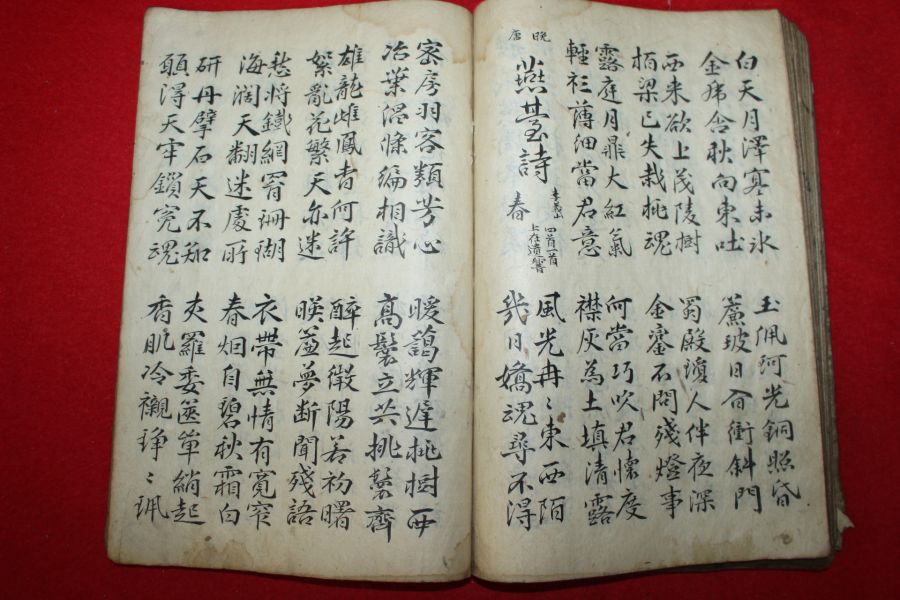 白天月澤寒未氷
金乕含秋向東吐
玉佩呵光銅照昏
簾玻日月衝斜門
西来欲上茂陵樹
栢梁已失栽桃魂
蜀殿瓊人伴夜深
金鑾不問殘燈事
露庭月井大紅氣
輕衫薄細當君意
何當巧吹君懷度
襟灰為土填清露
晚唐
燕臺詩 春 李義山 四首一首上在遺響
風光冉〻東西陌
幾日嬌魂尋不得
密房羽客類芳心
冶葉倡條徧相識
暖藹輝遲桃樹西
高鬟立共桃鬟齊
雄龍雌鳳杳何許
絮亂花繁天亦迷
醉起微陽若初曙
暎簾夢断聞殘語
愁將鐵網罥珊瑚
海濶天翻迷處所
衣帶無情有寬窄
春烟自碧秋霜白
研丹擘石天不知
願得天牢鎖寃魂
夾羅委篋单綃起
香肌冷襯琤〻珮